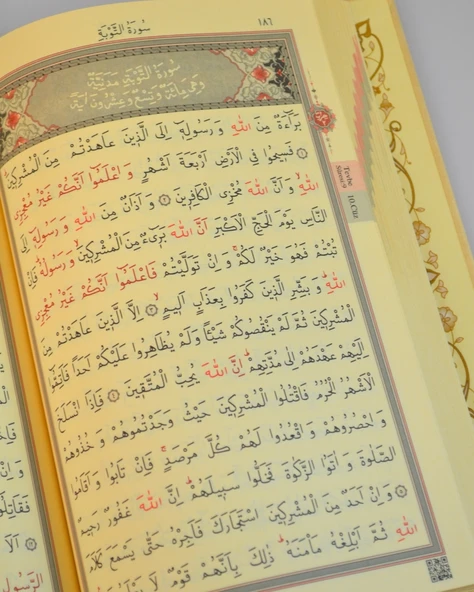 سُورَةُ التَّوْبَةِ
١٨٦
سُورَةُ التَّوْبَةِ مَدَنِيَّةٌ
وَهِيَ مِائَةٌ وَتِسْعٌ وَعِشْرُونَ اٰيَةً
بَرَٓاءَةٌ مِنَ اللّٰهِ وَرَسُولِهٖٓ اِلَى الَّذٖينَ عَاهَدْتُمْ مِنَ الْمُشْرِكٖينَ
۝١ فَسٖيحُوا فِي الْاَرْضِ اَرْبَعَةَ اَشْهُرٍ وَاعْلَمُٓوا اَنَّكُمْ غَيْرُ مُعْجِزِي
اللّٰهِ وَاَنَّ اللّٰهَ مُخْزِي الْكَافِرٖينَ ۝٢ وَاَذَانٌ مِنَ اللّٰهِ وَرَسُولِهٖٓ اِلَى
النَّاسِ يَوْمَ الْحَجِّ الْاَكْبَرِ اَنَّ اللّٰهَ بَرٖٓيءٌ مِنَ الْمُشْرِكٖينَ وَرَسُولُهُ فَاِنْ
تُبْتُمْ فَهُوَ خَيْرٌ لَكُمْ وَاِنْ تَوَلَّيْتُمْ فَاعْلَمُٓوا اَنَّكُمْ غَيْرُ مُعْجِزِي
اللّٰهِ وَبَشِّرِ الَّذٖينَ كَفَرُوا بِعَذَابٍ اَلٖيمٍ ۝٣ اِلَّا الَّذٖينَ عَاهَدْتُمْ مِنَ
الْمُشْرِكٖينَ ثُمَّ لَمْ يَنْقُصُوكُمْ شَيْـًٔا وَلَمْ يُظَاهِرُوا عَلَيْكُمْ اَحَدًا فَاَتِمُّٓوا
اِلَيْهِمْ عَهْدَهُمْ اِلٰى مُدَّتِهِمْ اِنَّ اللّٰهَ يُحِبُّ الْمُتَّقٖينَ ۝٤ فَاِذَا انْسَلَخَ
الْاَشْهُرُ الْحُرُمُ فَاقْتُلُوا الْمُشْرِكٖينَ حَيْثُ وَجَدْتُمُوهُمْ وَخُذُوهُمْ
وَاحْصُرُوهُمْ وَاقْعُدُوا لَهُمْ كُلَّ مَرْصَدٍ فَاِنْ تَابُوا وَاَقَامُوا
الصَّلٰوةَ وَاٰتَوُا الزَّكٰوةَ فَخَلُّوا سَبٖيلَهُمْ اِنَّ اللّٰهَ غَفُورٌ رَحٖيمٌ
۝٥ وَاِنْ اَحَدٌ مِنَ الْمُشْرِكٖينَ اسْتَجَارَكَ فَاَجِرْهُ حَتّٰى يَسْمَعَ كَلَامَ
اللّٰهِ ثُمَّ اَبْلِغْهُ مَأْمَنَهُ ذٰلِكَ بِاَنَّهُمْ قَوْمٌ لَا
Tevbe
Sûresi-9
10.Cüz